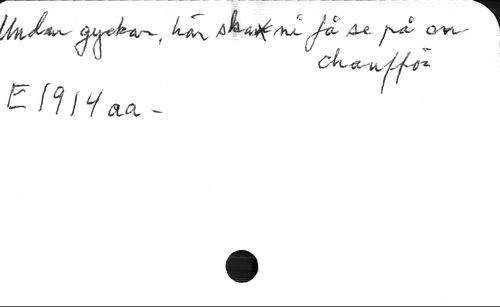 Undan gyckar, här ska ni få se på en
chaufför
E 1914 aa -